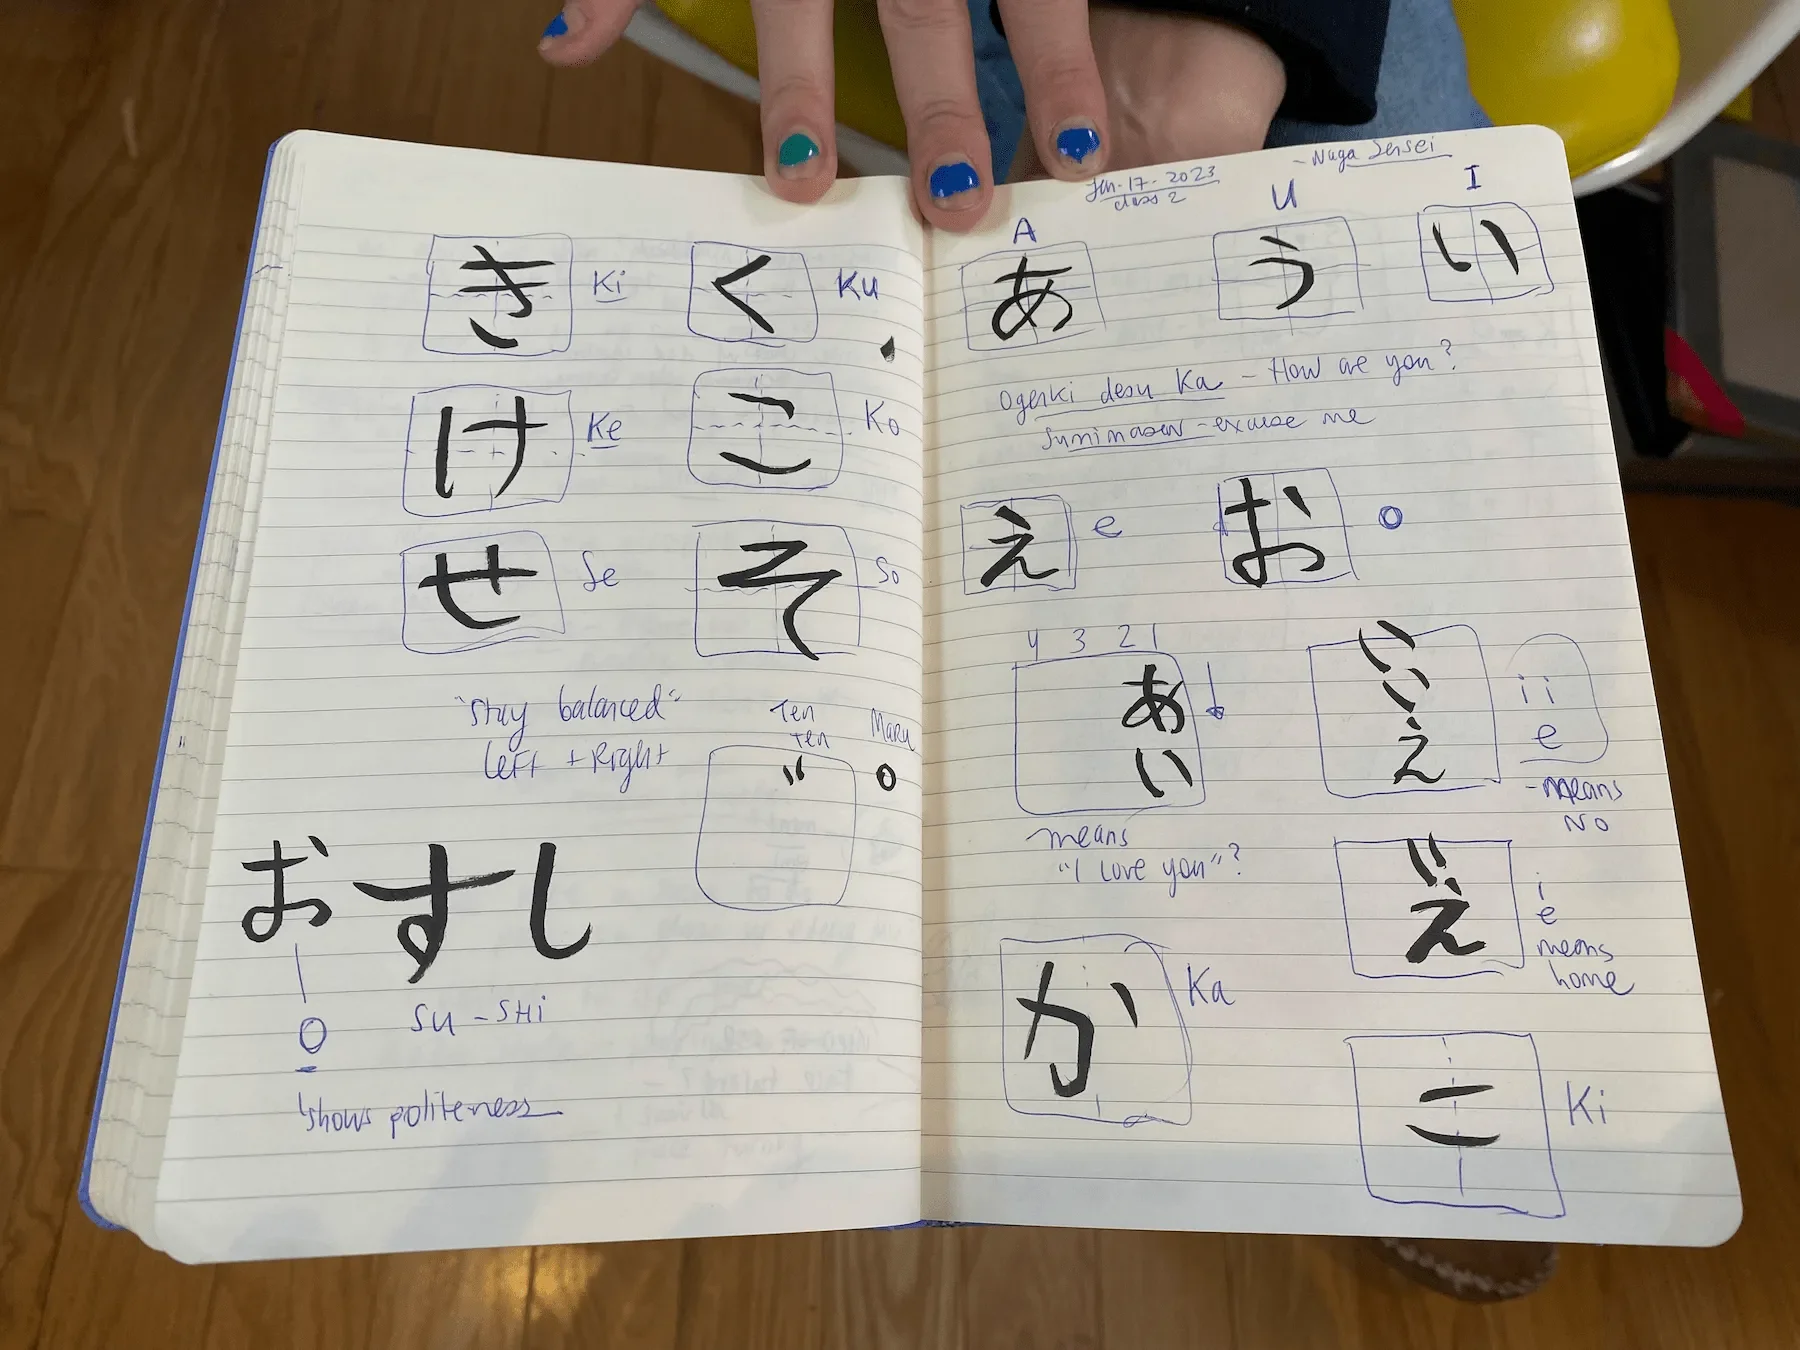 き Ki
く Ku
け Ke
こ Ko
せ Se
そ So
"Stay balanced"
Left + Right
Ten
Ten
Maru
゛
o
おすし
O
SU - SHi
shows politeness
Jan. 17. 2023
class 2
- Naga Sensei
A
U
I
あ
う
い
Ogenki desu Ka - How are you?
Sumimasen - excuse me
え e
お o
4 3 2 1
あ
い
means
"I love you"?
い
い
え
i i
e
- means
No
い
え
i
e
means
home
か Ka
こ Ki